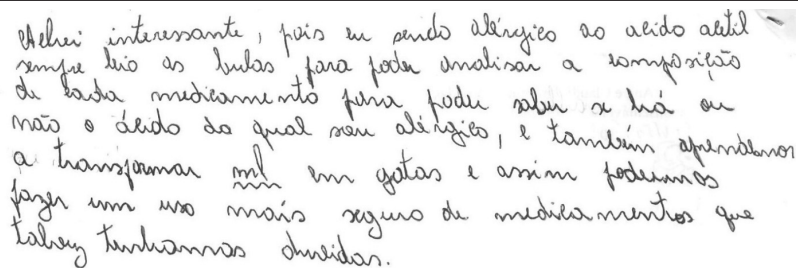 Achei interessante, pois eu sendo alérgico ao acido acetil
sempre leio as bulas para poder analisar a composição
de cada medicamento para poder saber se há ou
não o ácido do qual sou alérgico, e também aprendemos
a transformar ml em gotas e assim podermos
fazer um uso mais seguro de medicamentos que
talvez tenhamos duvidas.